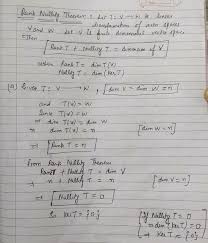 Rank Nullity Theorem : Let T : V → W be linear
transformation of vector spaces
V and W. Let V is finite dimensional vector space
Then
Rank T + Nullity T = dimension of V
where Rank T = dim T(V)
Nullity T = dim (Ker T)
(a) Given T : V → W , dim V = dim W = n
and T(V) = W
Since T(V) = W
⇒ dim T(V) = dim W
⇒ dim T(V) = n [dim W = n]
⇒ Rank T = n
From Rank Nullity Theorem
Rank T + Nullity T = dim V
⇒ n + Nullity T = n [dim V = n]
⇒ Nullity T = 0
⇒ Ker T = {0} [If Nullity T = 0
⇒ dim (Ker T) = 0
⇒ Ker T = {0}]